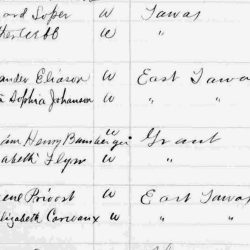 ard Soper W Tawas
W "
ander Eliason W East Tawa
a Sophia Johanson W " "
iam Henry Bamberger W Grant
abeth Flynn W "
ene Provost W East Tawas
Elizabeth Careaux W " "